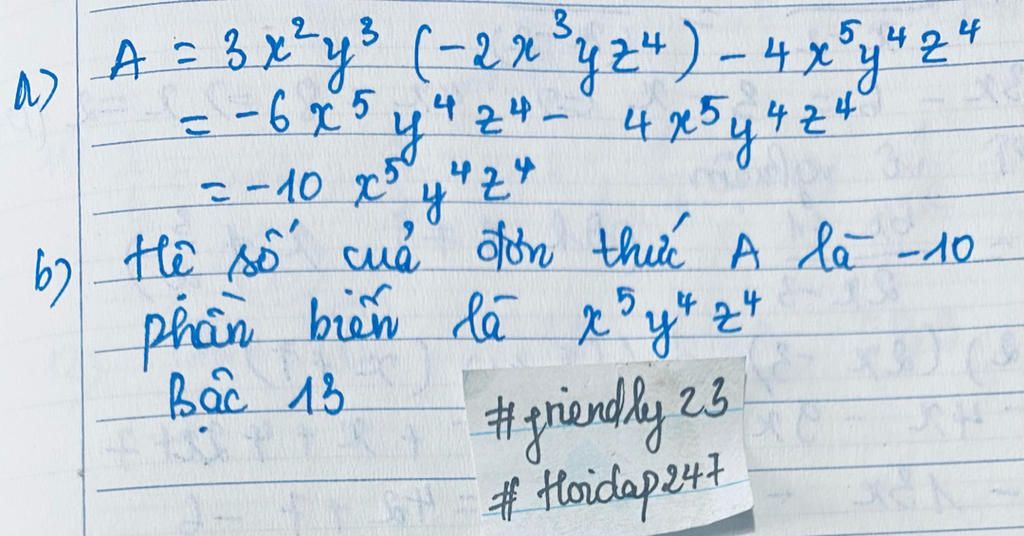 a) A = 3x²y³ (-2x³yz⁴) - 4x⁵y⁴z⁴
= -6x⁵y⁴z⁴ - 4x⁵y⁴z⁴
= -10 x⁵y⁴z⁴
b) Hệ số của đơn thức A là -10
phần biến là x⁵y⁴z⁴
Bậc 13
#friendly23
#Hoidap247